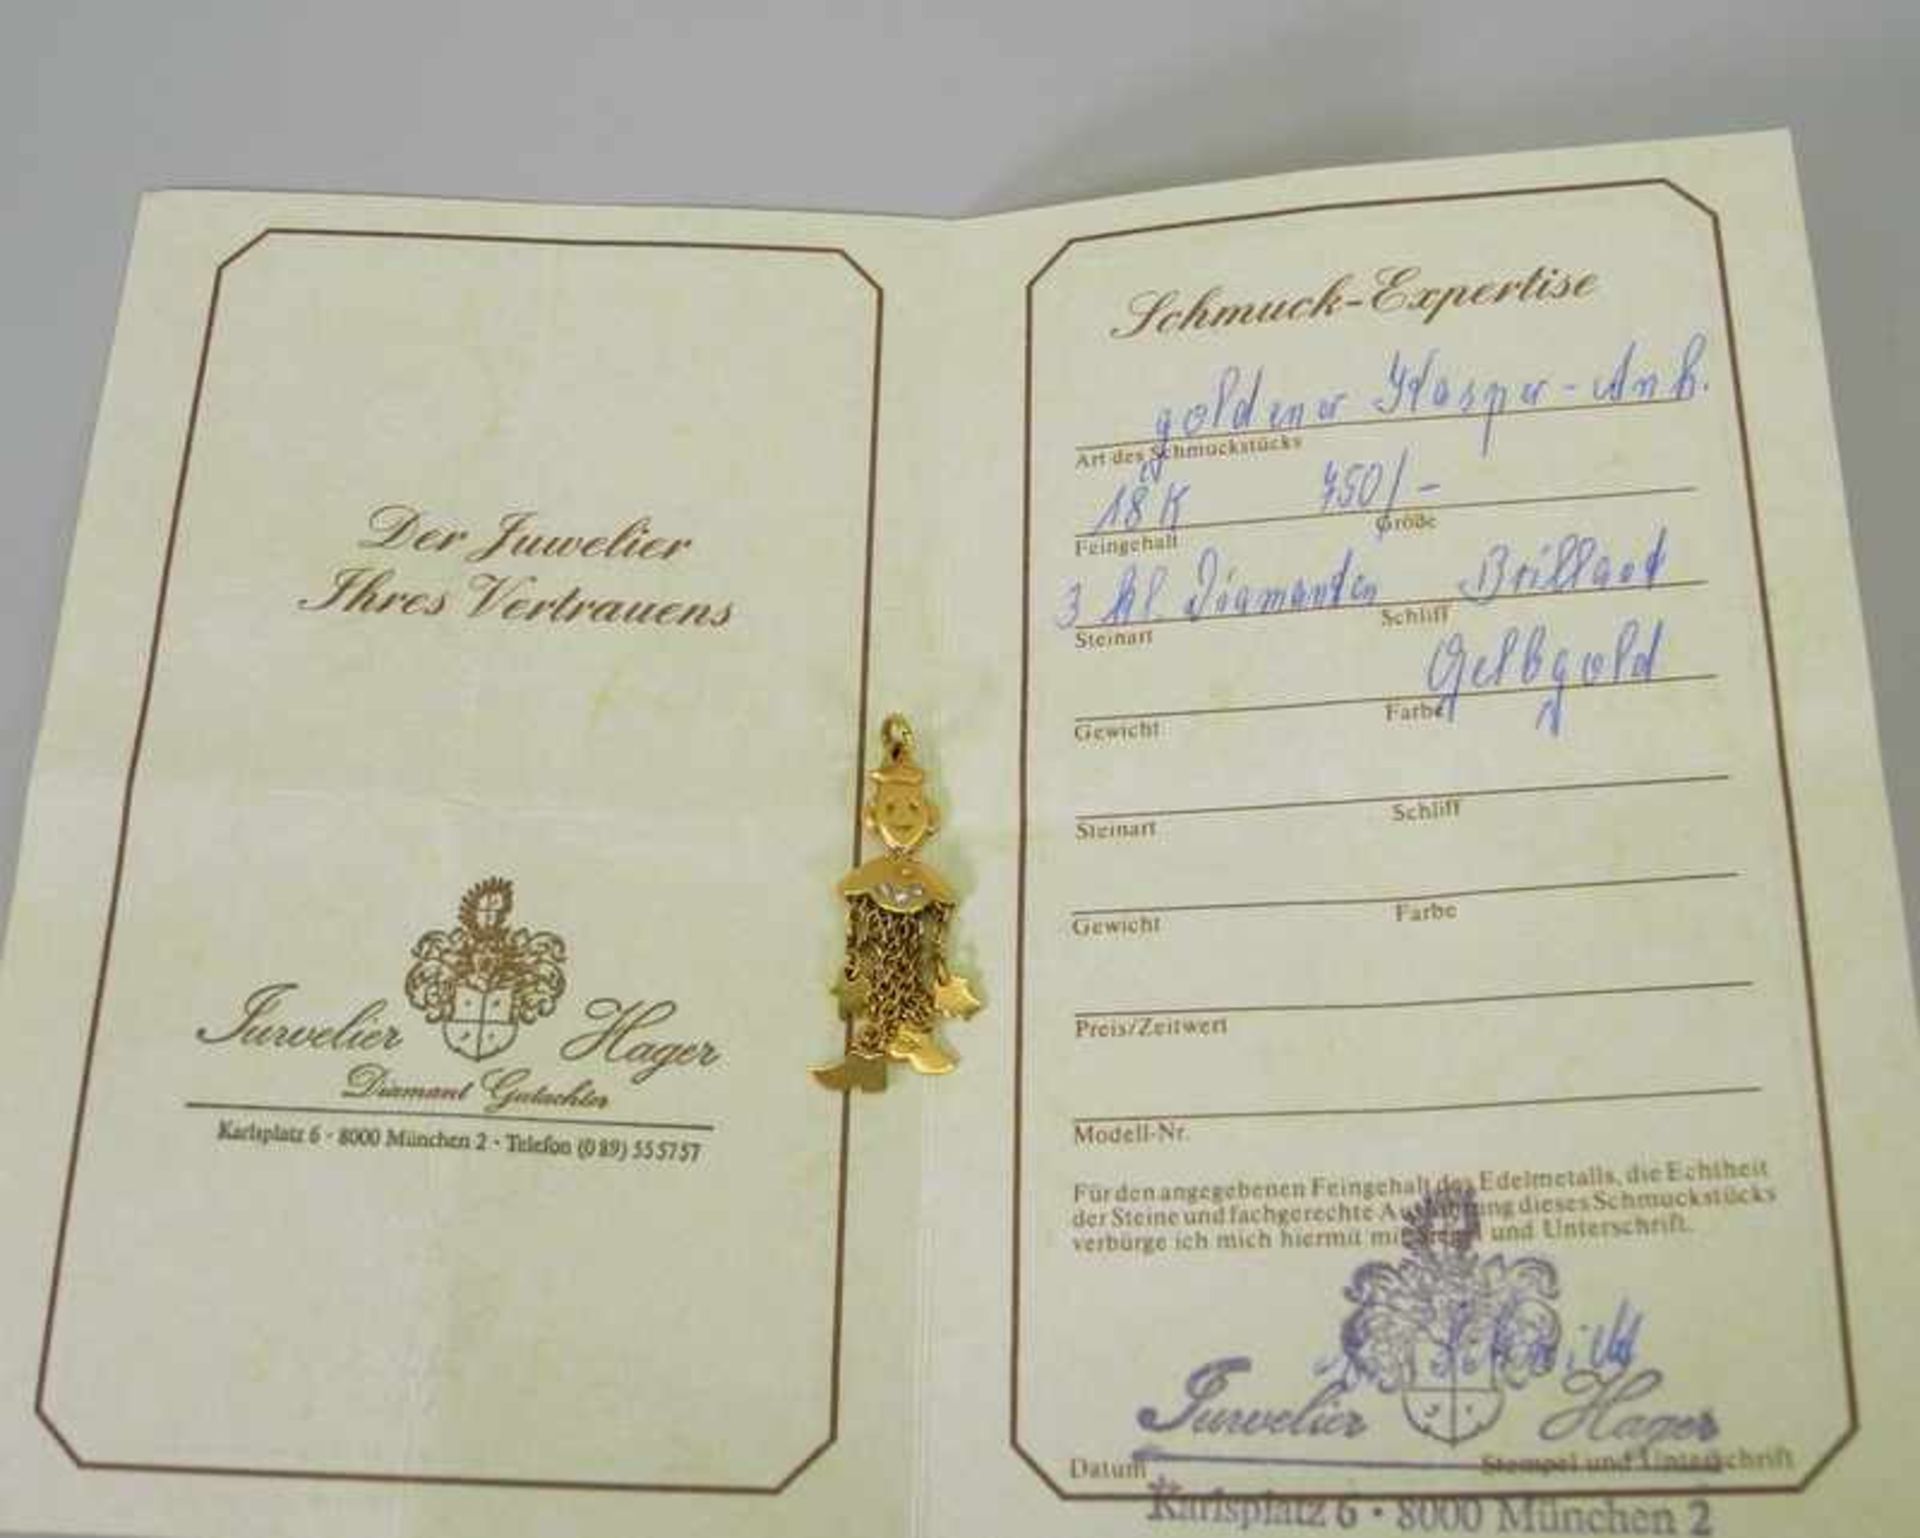 Der Juwelier
Ihres Vertrauens
Juwelier Hager
Diamant Gutachter
Karlsplatz 6 - 8000 München 2 - Telefon (0 89) 55 57 57
Schmuck-Expertise
goldener Kasper-Anh.
Art des Schmuckstücks
18 K 750/-
Feingehalt Größe
3 kl. Diamanten Brillant
Steinart Schliff
Gelbgold
Gewicht Farbe
Steinart Schliff
Gewicht Farbe
Preis/Zeitwert
Modell-Nr.
Für den angegebenen Feingehalt des Edelmetalls, die Echtheit
der Steine und fachgerechte Ausführung dieses Schmuckstücks
verbürge ich mich hiermit mit und Unterschrift.
Juwelier Hager
Datum Stempel und Unterschrift
Karlsplatz 6 · 8000 München 2